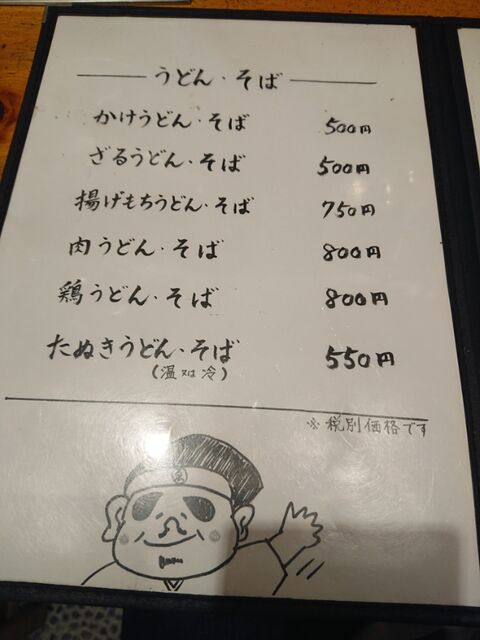 うどん・そば
かけうどん・そば 500円
ざるうどん・そば 500円
揚げもちうどん・そば 750円
肉うどん・そば 800円
鶏うどん・そば 800円
たぬきうどん・そば 550円
(温又は冷)
※税別価格です